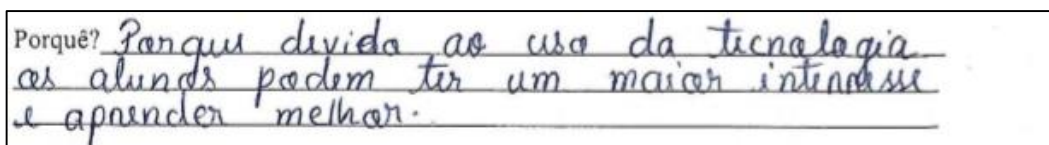 Porquê? Porque devido ao uso da tecnologia
os alunos podem ter um maior interesse
e aprender melhor.